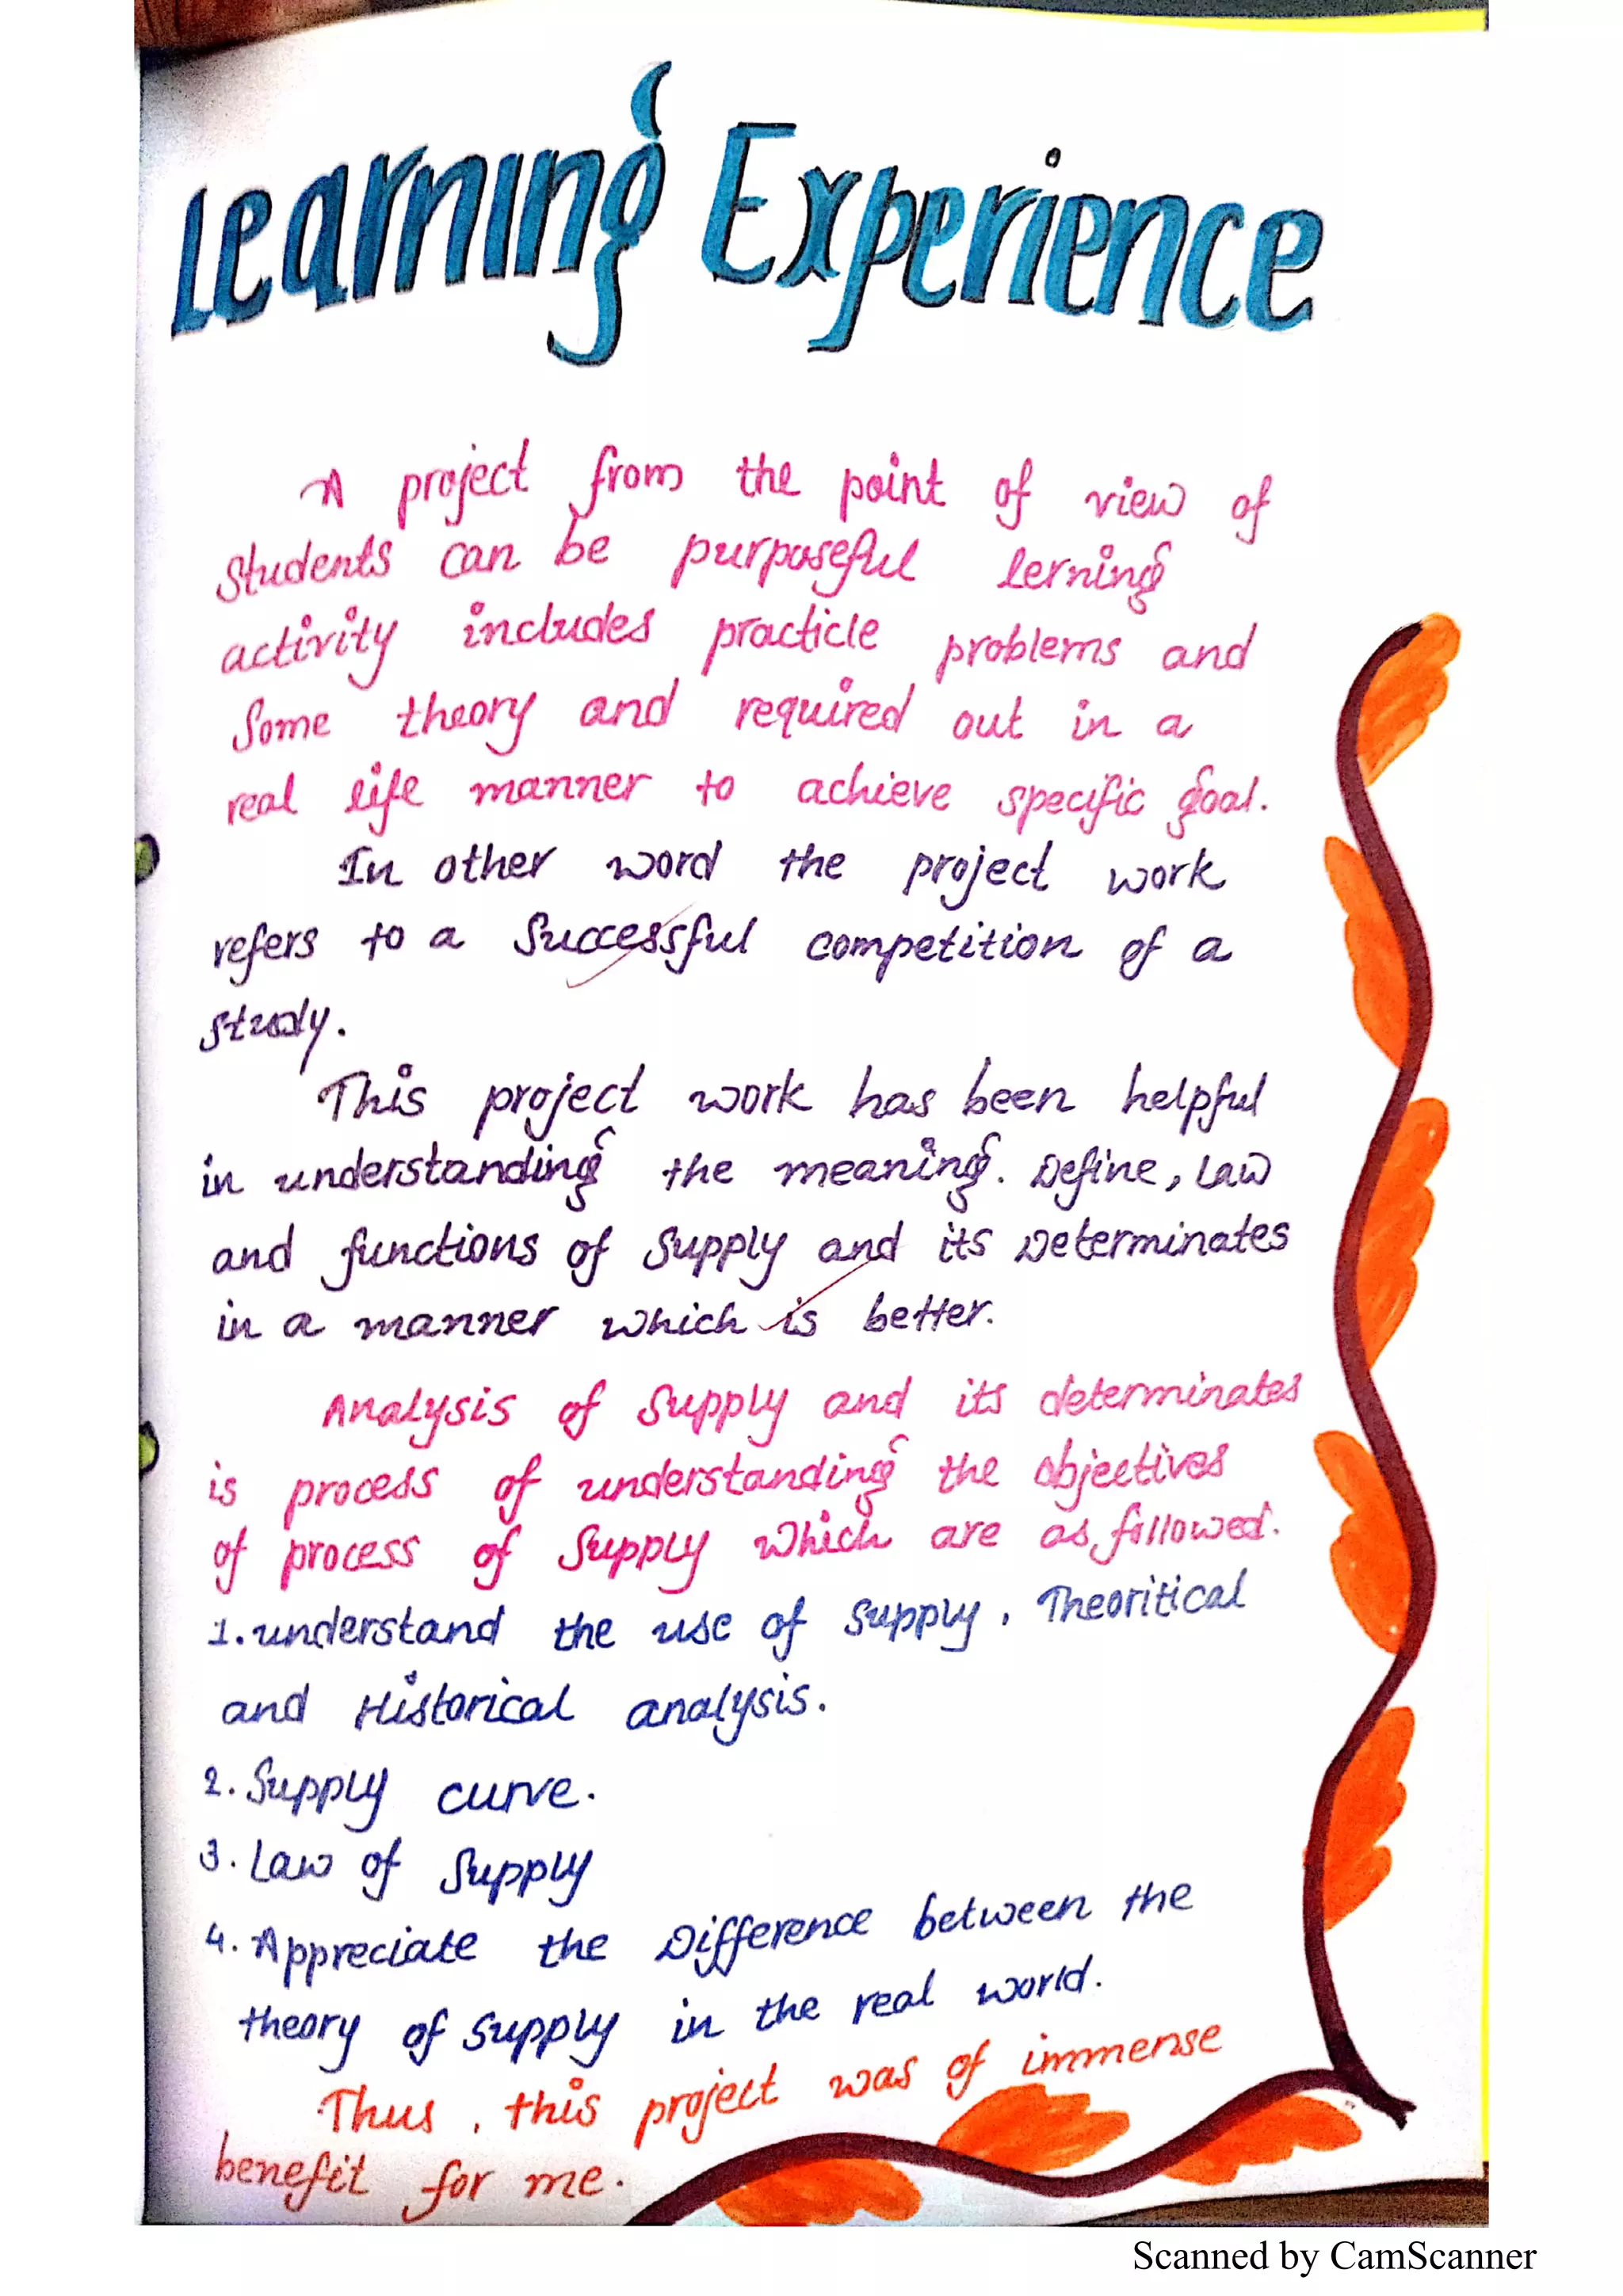 Learning Experience
A project from the point of view of
students can be purposeful lerning
activity includes practicle problems and
Some theory and required out in a
real life manner to achieve specific goal.
In other word the project work
refers to a Successful competition of a
study.
This project work has been helpful
in understanding the meaning. Define, Law
and functions of Supply and its Determinates
in a manner which is better.
Analysis of Supply and its determinates
is process of understanding the objectives
of process of Supply which are as followed.
1. understand the use of Supply, Theoritical
and Historical analysis.
2. Supply curve.
3. Law of Supply
4. Appreciate the Difference between the
theory of Supply in the real world.
Thus, this project was of immense
benefit for me.
Scanned by CamScanner